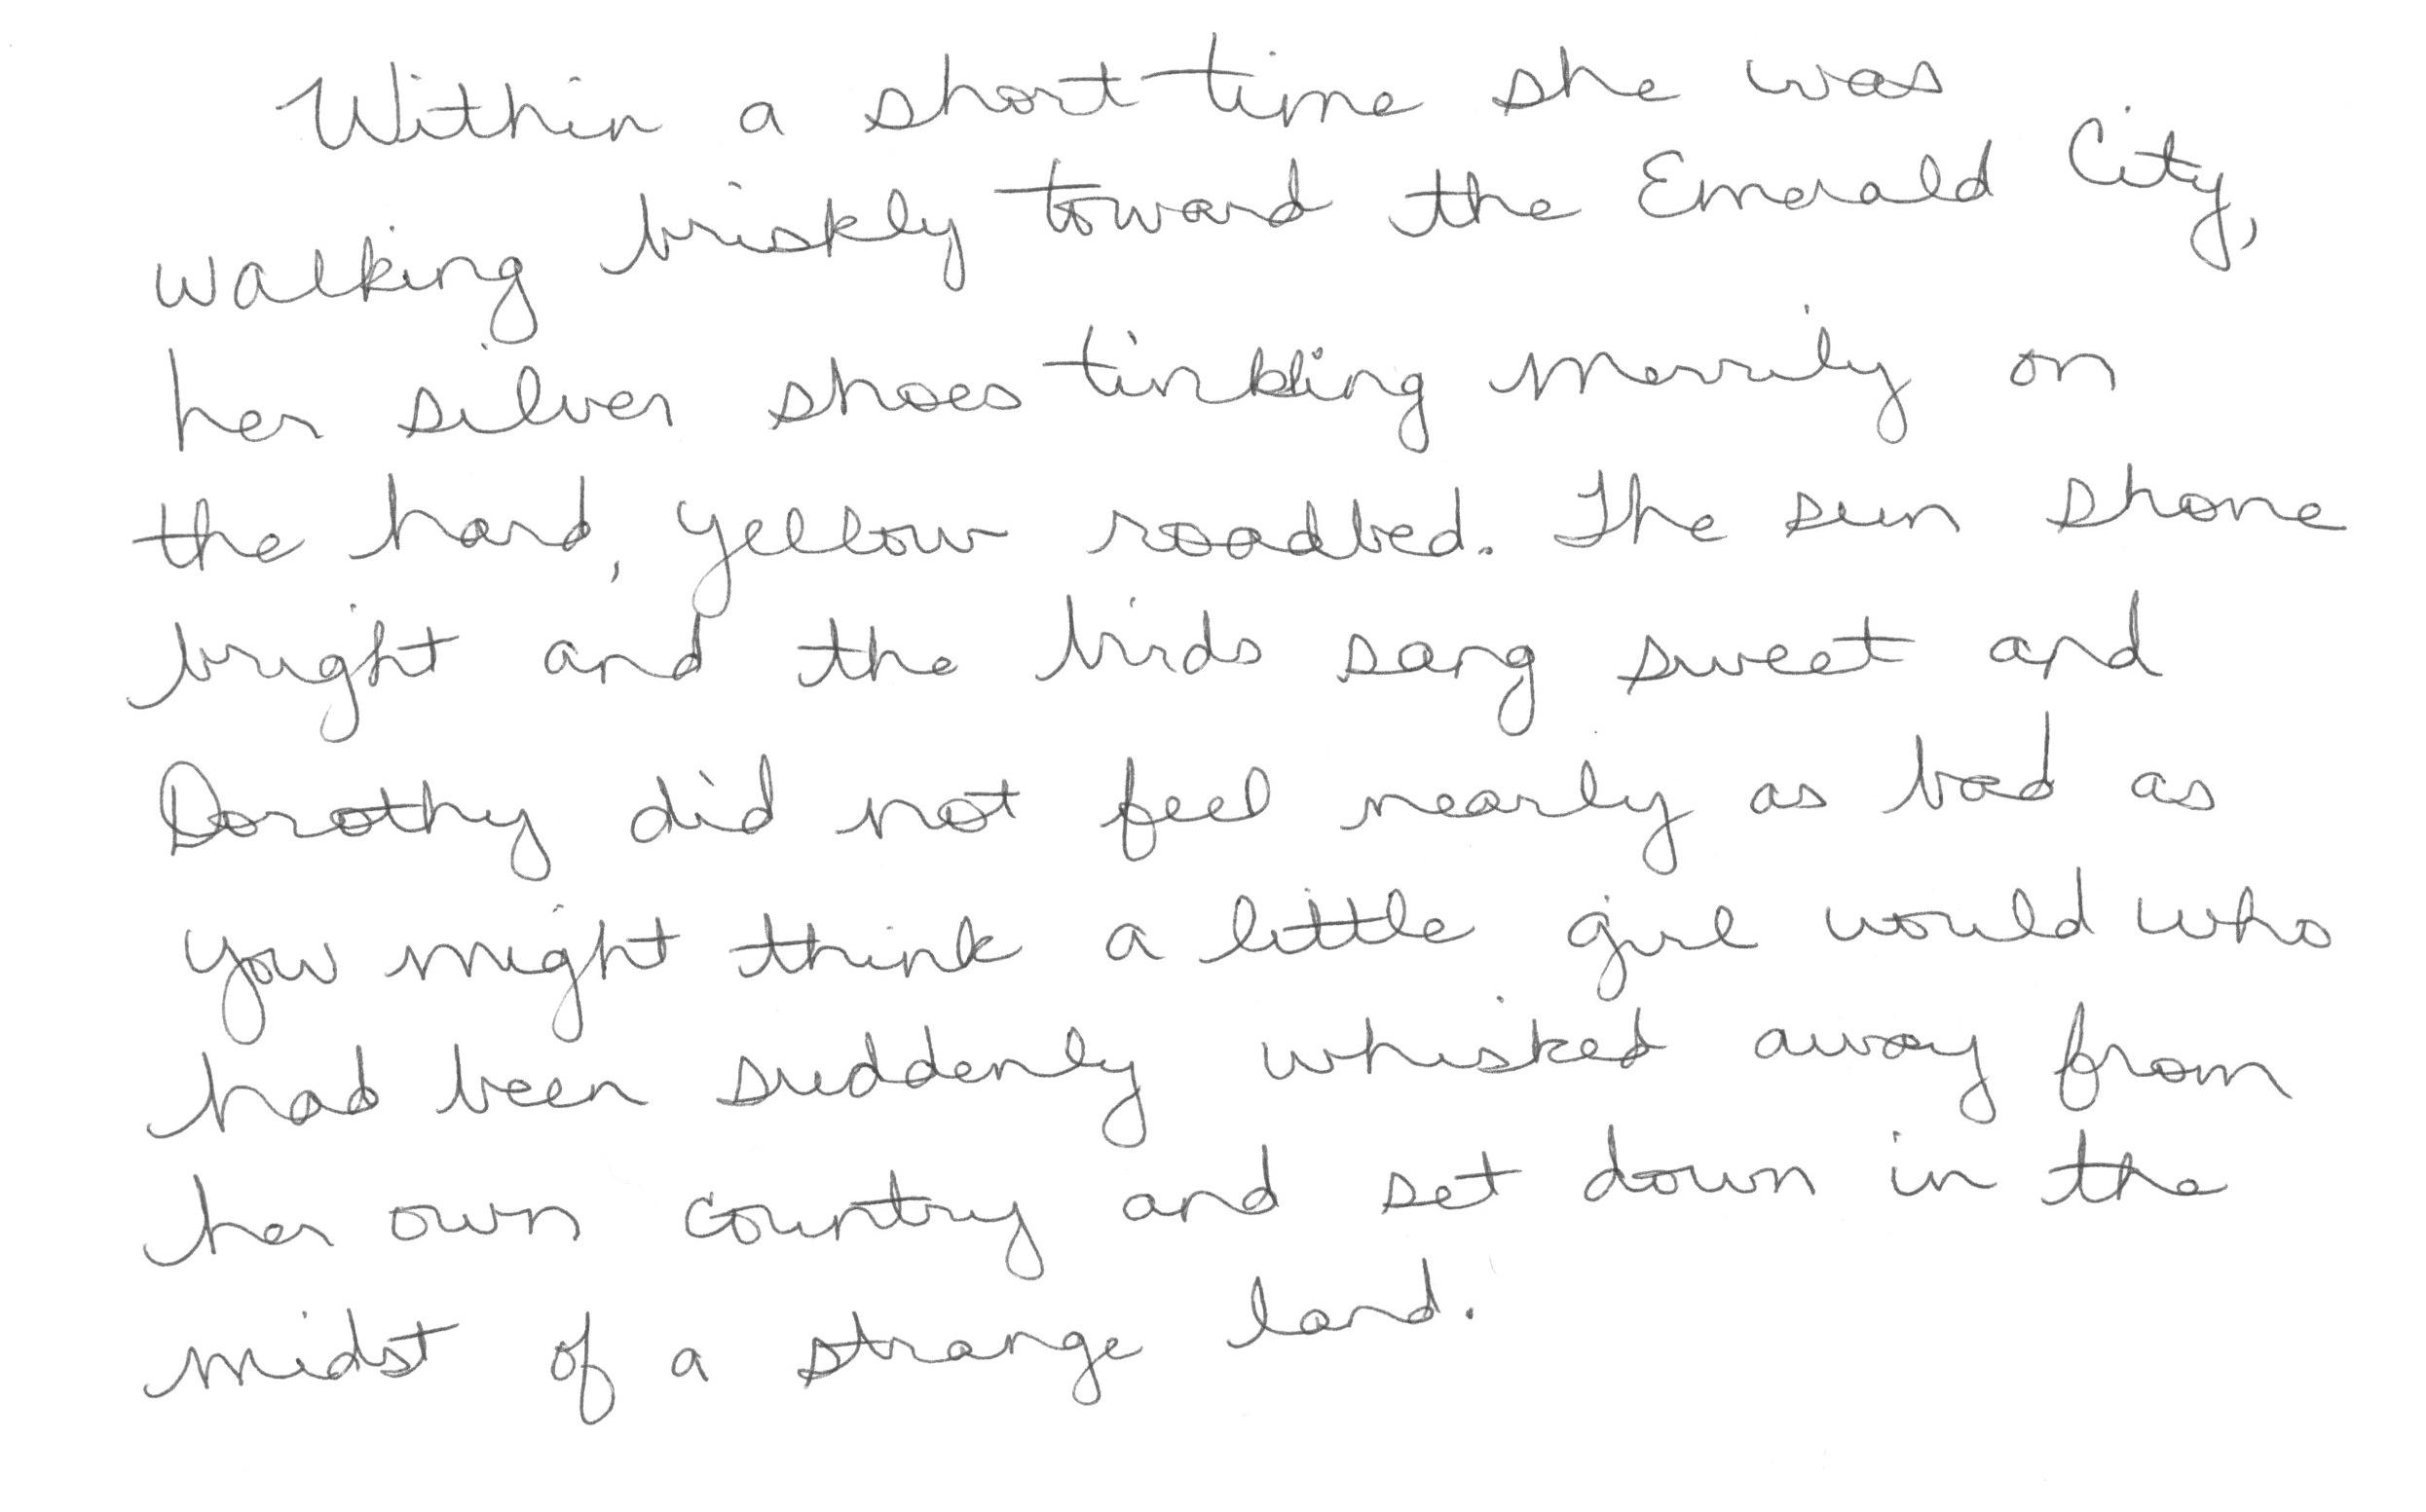 Within a short time she was
walking briskly toward the Emerald City,
her silver shoes tinkling merrily on
the hard, yellow roadbed. The sun shone
bright and the birds sang sweet and
Dorothy did not feel nearly as bad as
you might think a little girl would who
had been suddenly whisked away from
her own country and set down in the
midst of a strange land.